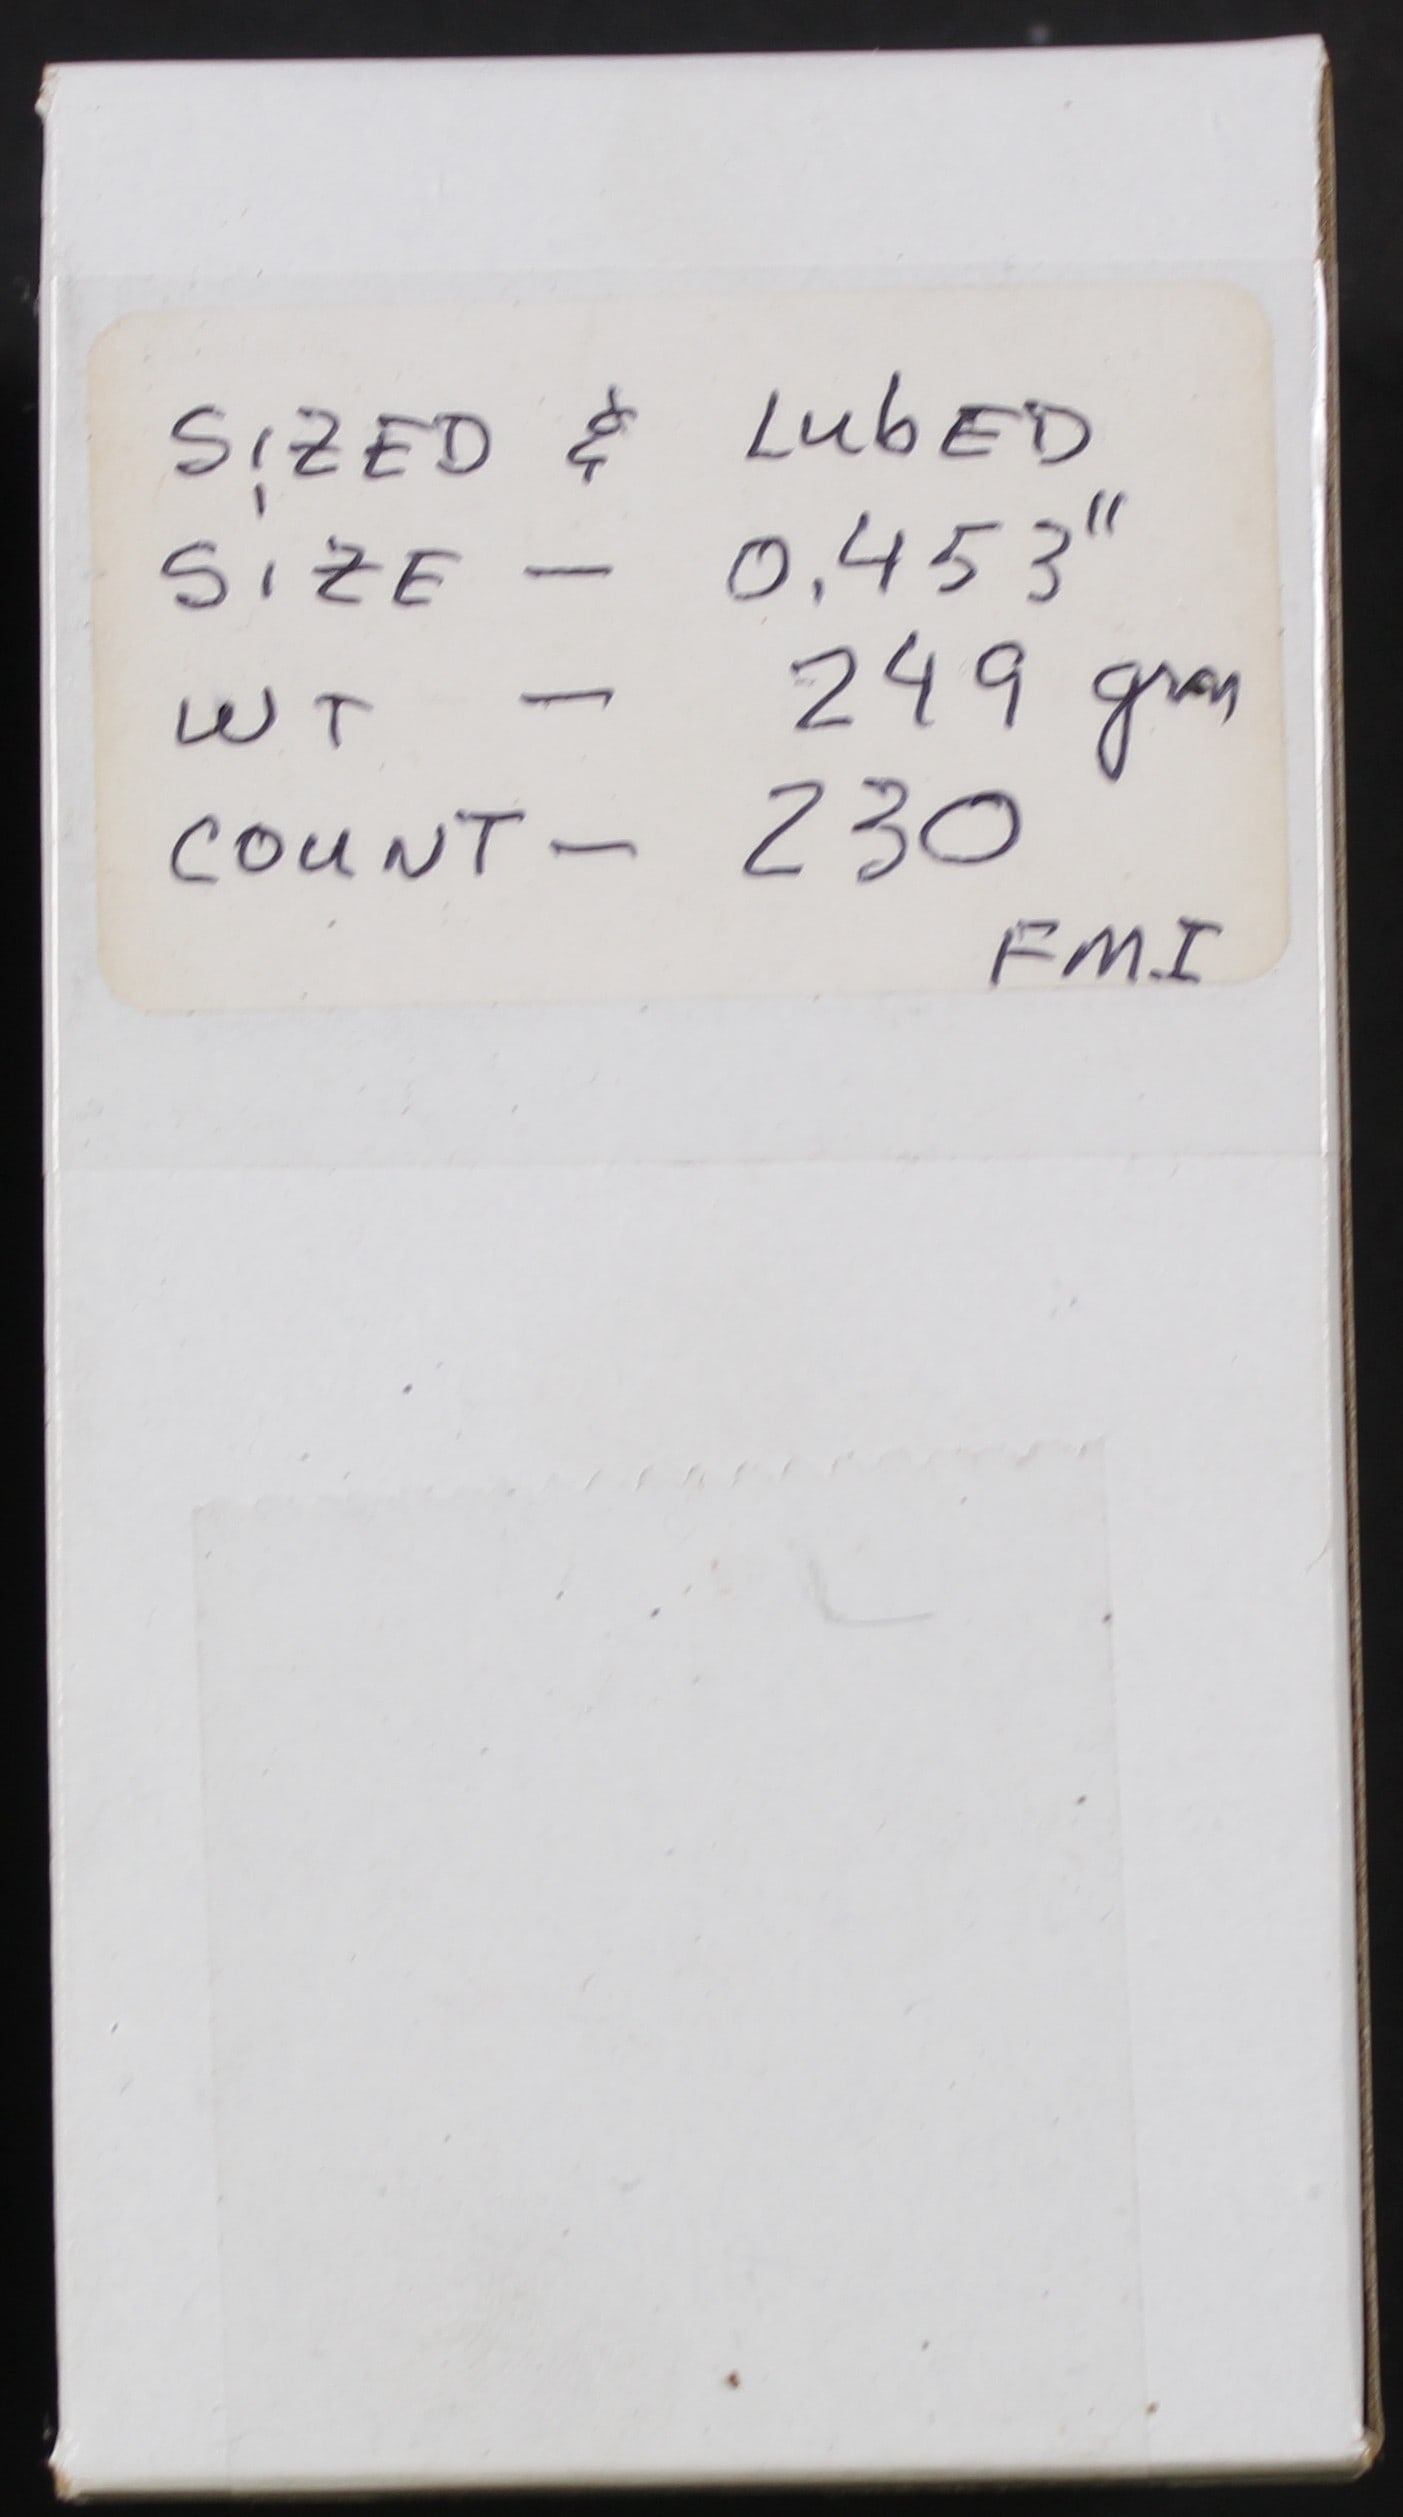 SiZED & LubED
SiZE - 0.453"
WT - 249 grn
COUNT - 230
FMI